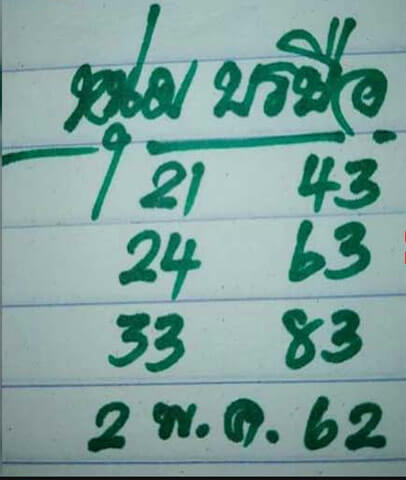 หนุ่ม บรบือ
21 43
24 63
33 83
2 พ.ค. 62